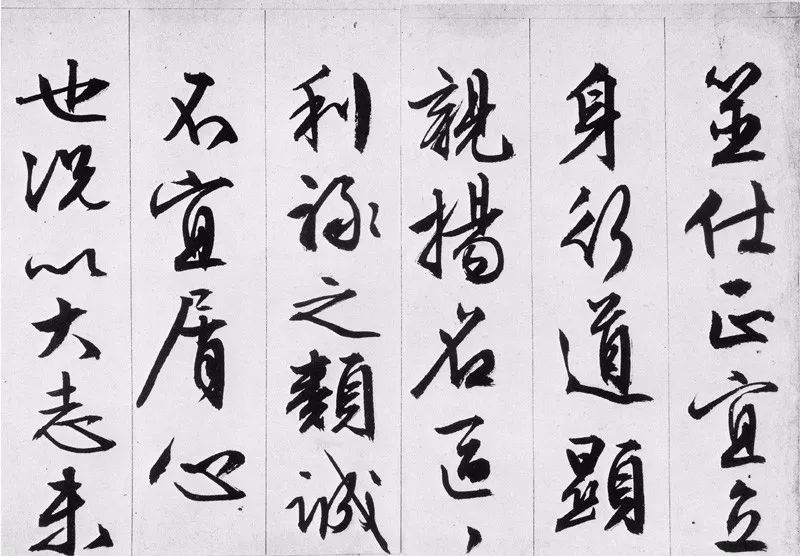 筮仕正宜立
身行道顯
親揚名區、
利祿之類誠
不宜屑心
也況以大志未